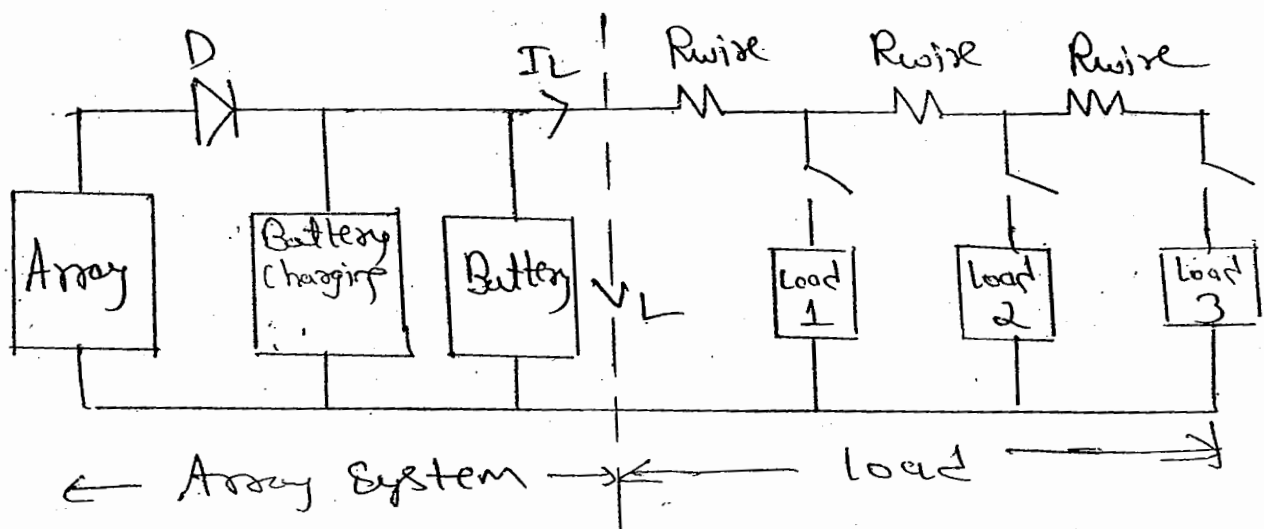 D
I_L
Rwire
Rwire
Rwire
Array
Battery
charging
Battery
L
Load
1
Load
2
Load
3
Array System
load